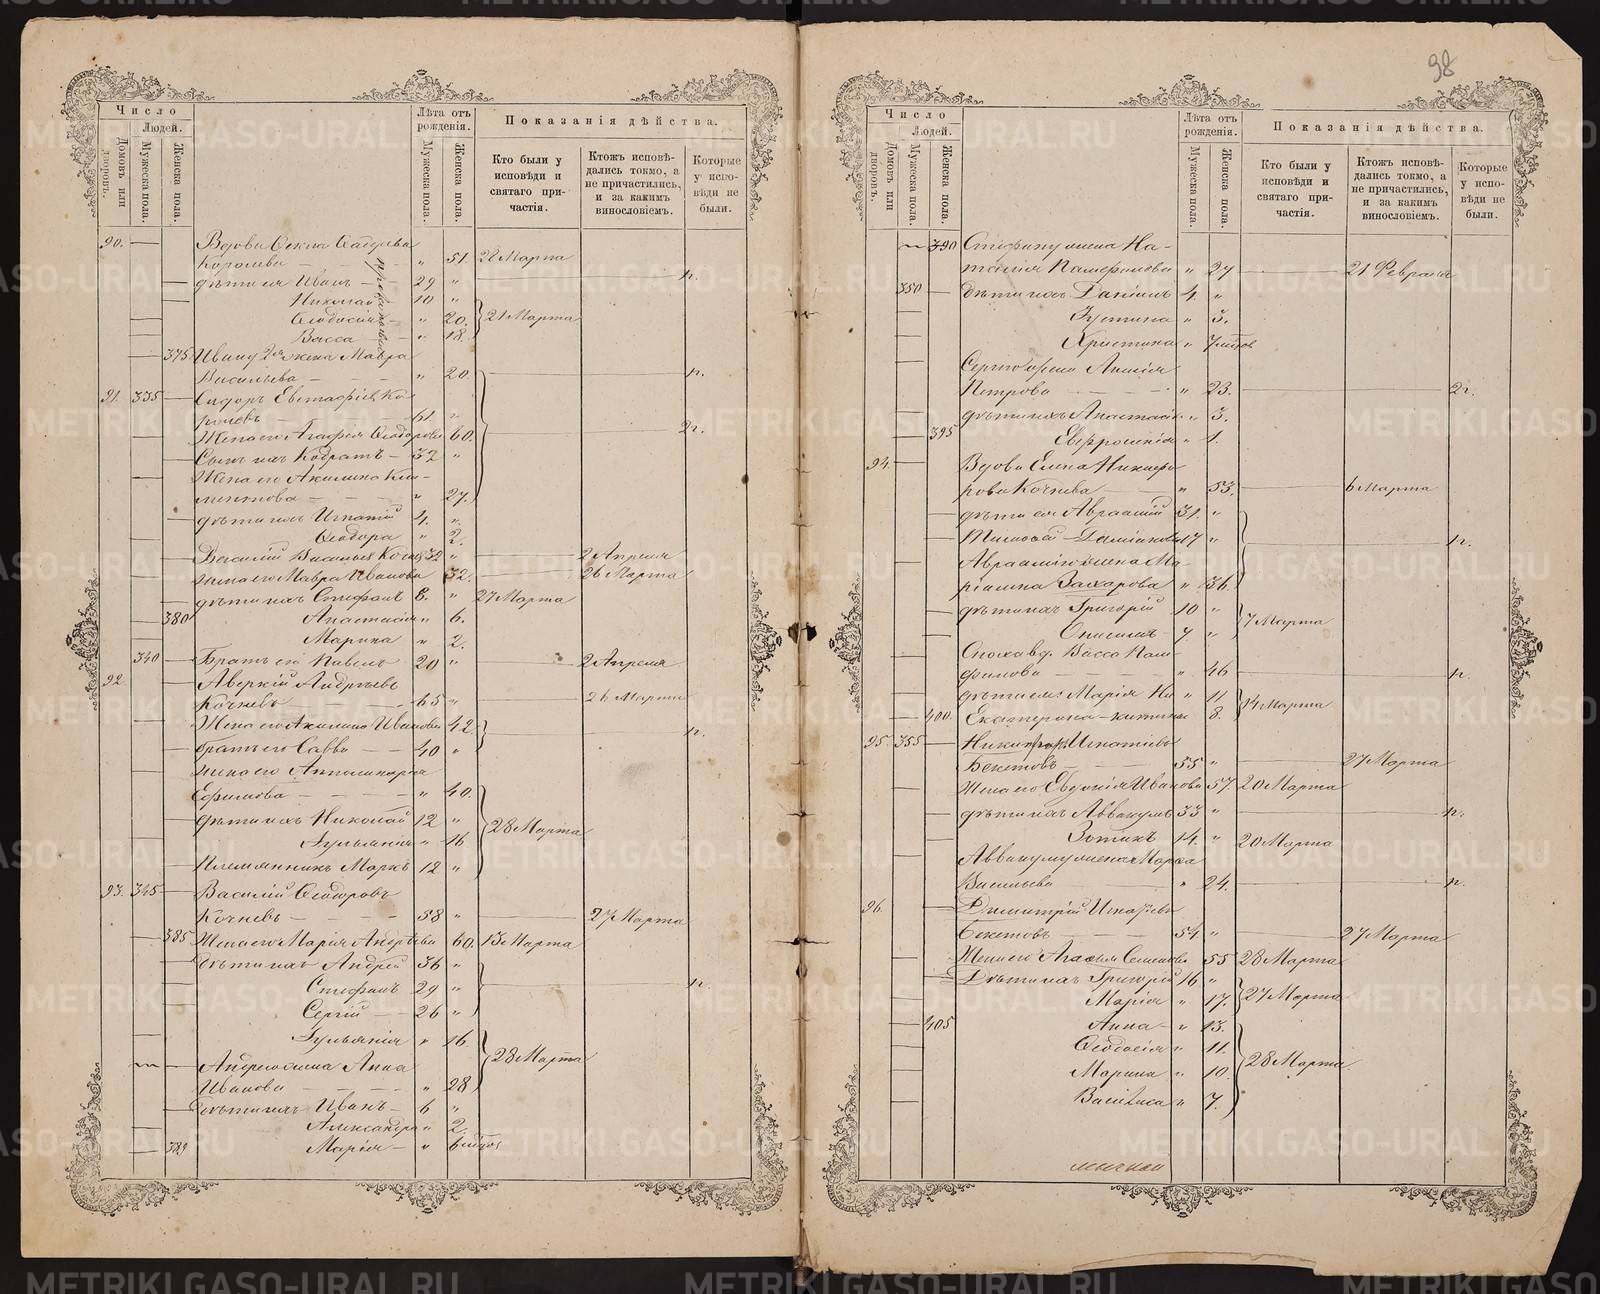 98
Число
Людей.
Домовъ или дворовъ.
Мужеска пола.
Женска пола.
Лѣта отъ рожденія.
Мужеска пола.
Женска пола.
Показанія дѣйства.
Кто были у исповѣди и святаго причастія.
Ктожъ исповѣдались токмо, а не причастились, и за какимъ винословіемъ.
Которые у исповѣди не были.
90. Вдова
Королева " 51. 22 Марта
дѣти ея Иванъ 29 " н.
Николай 10 "
Ѳеодосія " 20. 21 Марта
Васса " 18.
375 Ивану жена Мавра
Васильева " 20. н.
91. 335 Сидоръ Евстафіевъ Ко
61. "
Жена его Агафья Ѳеодорова 60. 2 г.
Сынъ ихъ Кодратъ 32 "
Жена его Акилина Кли-
ментова " 27.
дѣти ихъ Игнатій 4. "
Ѳеодора " 2.
Василій Васильевъ 32 " 2 Апреля
жена его Мавра Иванова 32. 26 Марта
дѣти ихъ Стефанъ 8. " 27 Марта
380 Анастасія " 6.
Марина " 2.
340 Братъ его Павелъ 20 " 2 Апреля
92 Аверкій Андреевъ
Кочневъ 65 " 26 Марта
Жена его Акилина Иванова 42 н.
братъ его Савва 40 "
жена его Апполинарія
Ефимова " 40.
дѣти ихъ Николай 12 " 28 Марта
Іульянія " 16
Племянникъ Маркъ 12 "
93. 345 Василій Ѳеодоровъ
Кочневъ 58 " 27 Марта
385 Жена его Марія Андреева 60. 13 Марта
дѣти ихъ Андрей 36 "
Стефанъ 29 " н
Сергій 26 "
Іульянія " 16.
Андрею жена Анна 28 Марта
Иванова " 28
дѣти ихъ Иванъ 6 "
Александра " 2.
389 Марія " 6 мѣсяц
Число
Людей.
Домовъ или дворовъ.
Мужеска пола.
Женска пола.
Лѣта отъ рожденія.
Мужеска пола.
Женска пола.
Показанія дѣйства.
Кто были у исповѣди и святаго причастія.
Ктожъ исповѣдались токмо, а не причастились, и за какимъ винословіемъ.
Которые у исповѣди не были.
390 Стефану жена На-
талія Памфилова " 27 21 Февраля
350 дѣти ихъ Даніилъ 4. "
Іустина " 3.
Христина " 7 мѣсяц
Сергію жена Анисія
Петрова " 23. 2 г.
дѣти ихъ Анастасія " 3.
395 Евфросинія " 1.
94. Вдова Елена Никифо
рова Кочнева " 53. 6 Марта
дѣти ея Авраамій 31. "
Тимофей 17 " н.
Авраамію жена Ма-
ріамна Захарова " 36.
дѣти ихъ Григорій 10 "
Онисимъ 7 " 7 Марта
Сноха вд. Васса Пам-
филова " 46 н.
дѣти ея Марія " 11
400. Екатерина " 8. 14 Марта
95. 355 Никифоръ Игнатіевъ
Бекетовъ 55 " 27 Марта
Жена его Евдокія Иванова 57. 20 Марта
дѣти ихъ Аввакумъ 33 " н.
Зотикъ 14. " 20 Марта
Аввакуму жена Марѳа
Васильева " 24. н.
96. Димитрій Игнатіевъ
Бекетовъ 54. " 27 Марта
Жена его Агафья Семенова 55 28 Марта
Дѣти ихъ Григорій 16 "
Марія " 17. 27 Марта
405 Анна " 13.
Ѳеодосія " 11. 28 Марта
Марина " 10.
Василиса " 7.
METRIKI.GASO-URAL.RU